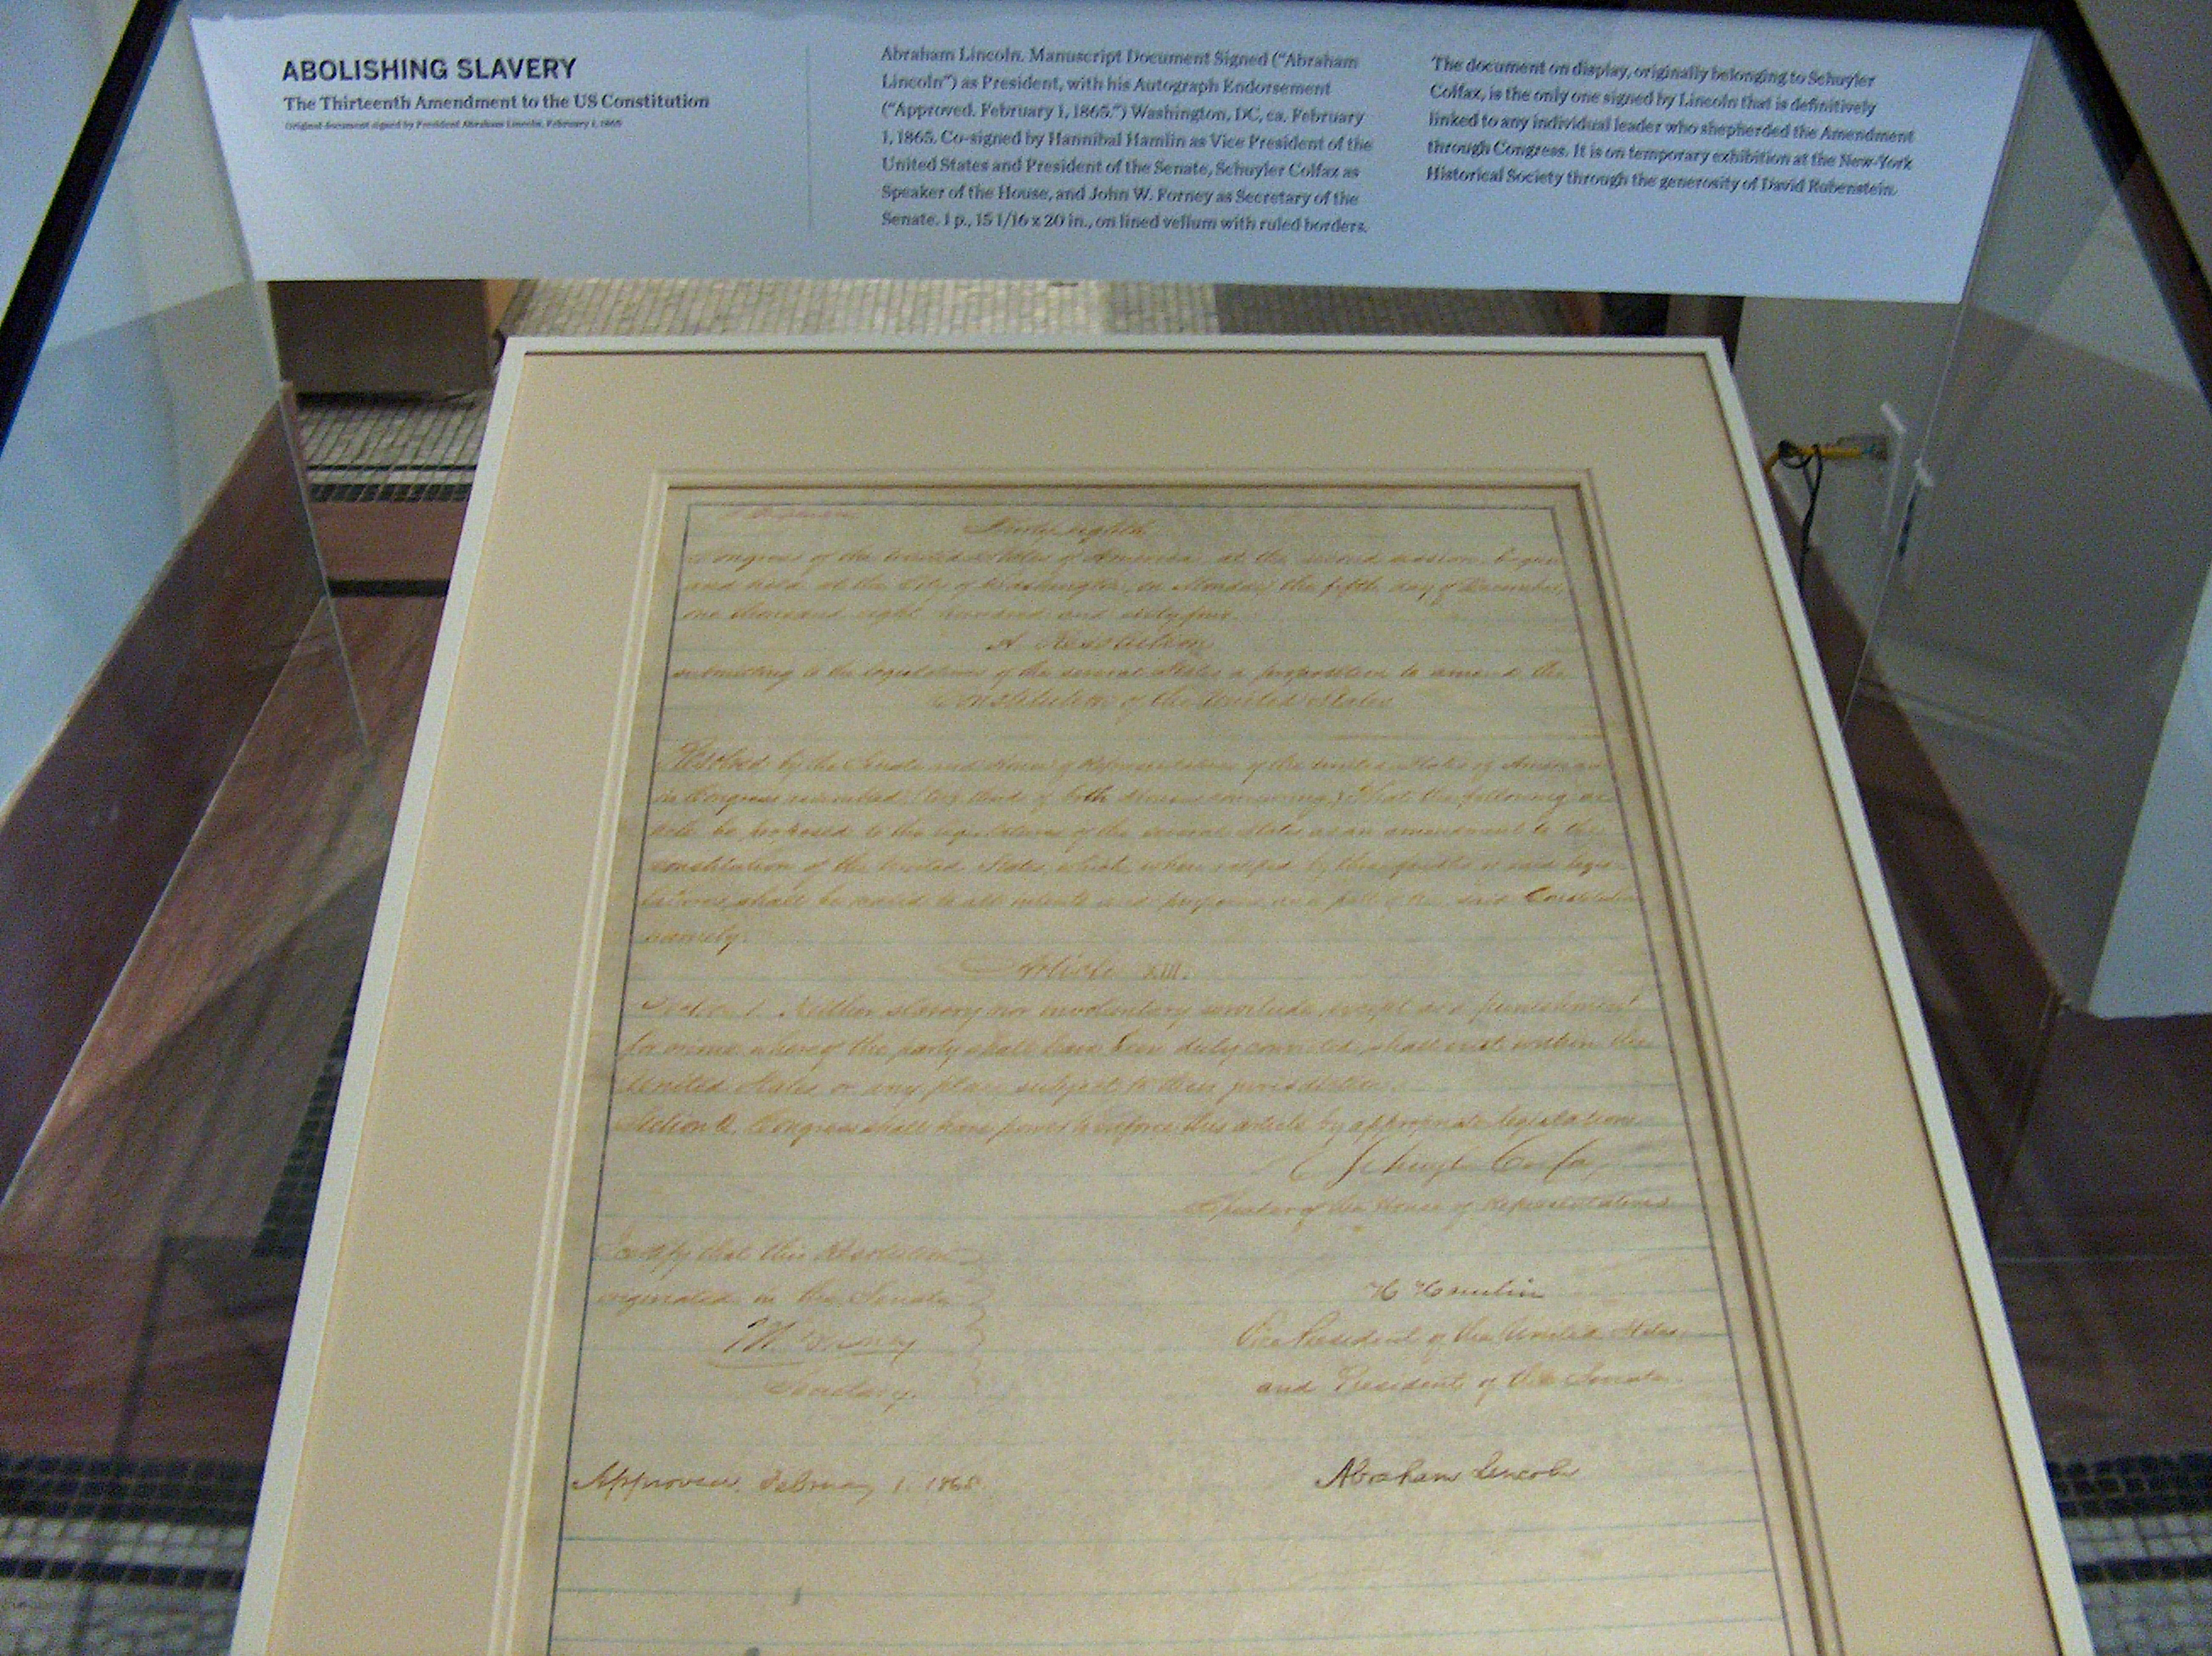 ABOLISHING SLAVERY
The Thirteenth Amendment to the US Constitution
Original document signed by President Abraham Lincoln, February 1, 1865
Abraham Lincoln. Manuscript Document Signed ("Abraham
Lincoln") as President, with his Autograph Endorsement
("Approved. February 1, 1865.") Washington, DC, ca. February
1, 1865. Co-signed by Hannibal Hamlin as Vice President of the
United States and President of the Senate, Schuyler Colfax as
Speaker of the House, and John W. Forney as Secretary of the
Senate. 1 p., 15 1/16 x 20 in., on lined vellum with ruled borders.
The document on display, originally belonging to Schuyler
Colfax, is the only one signed by Lincoln that is definitively
linked to any individual leader who shepherded the Amendment
through Congress. It is on temporary exhibition at the New-York
Historical Society through the generosity of David Rubenstein.
Thirty-eighth
Congress of the United States of America, at the second session, begun
and held at the City of Washington, on Monday the fifth day of December,
one thousand eight hundred and sixty-four.
A Resolution
submitting to the legislatures of the several States a proposition to amend the
Constitution of the United States
Resolved by the Senate and House of Representatives of the United States of America
in Congress assembled, (two thirds of both Houses concurring,) That the following ar
ticle be proposed to the legislatures of the several States as an amendment to the
constitution of the United States, which, when ratified by three-fourths of said legis-
latures, shall be valid to all intents and purposes, as a part of the said Constitution
namely:
Article XIII.
Section 1. Neither slavery nor involuntary servitude, except as a punishment
for crime whereof the party shall have been duly convicted, shall exist within the
United States or any place subject to their jurisdiction.
Section 2. Congress shall have power to enforce this article by appropriate legislation.
Schuyler Colfax
Speaker of the House of Representatives
I certify that this Resolution
originated in the Senate
H Hamlin
Vice President of the United States,
Forney
Secretary.
and President of the Senate.
Approved, February 1, 1865.
Abraham Lincoln